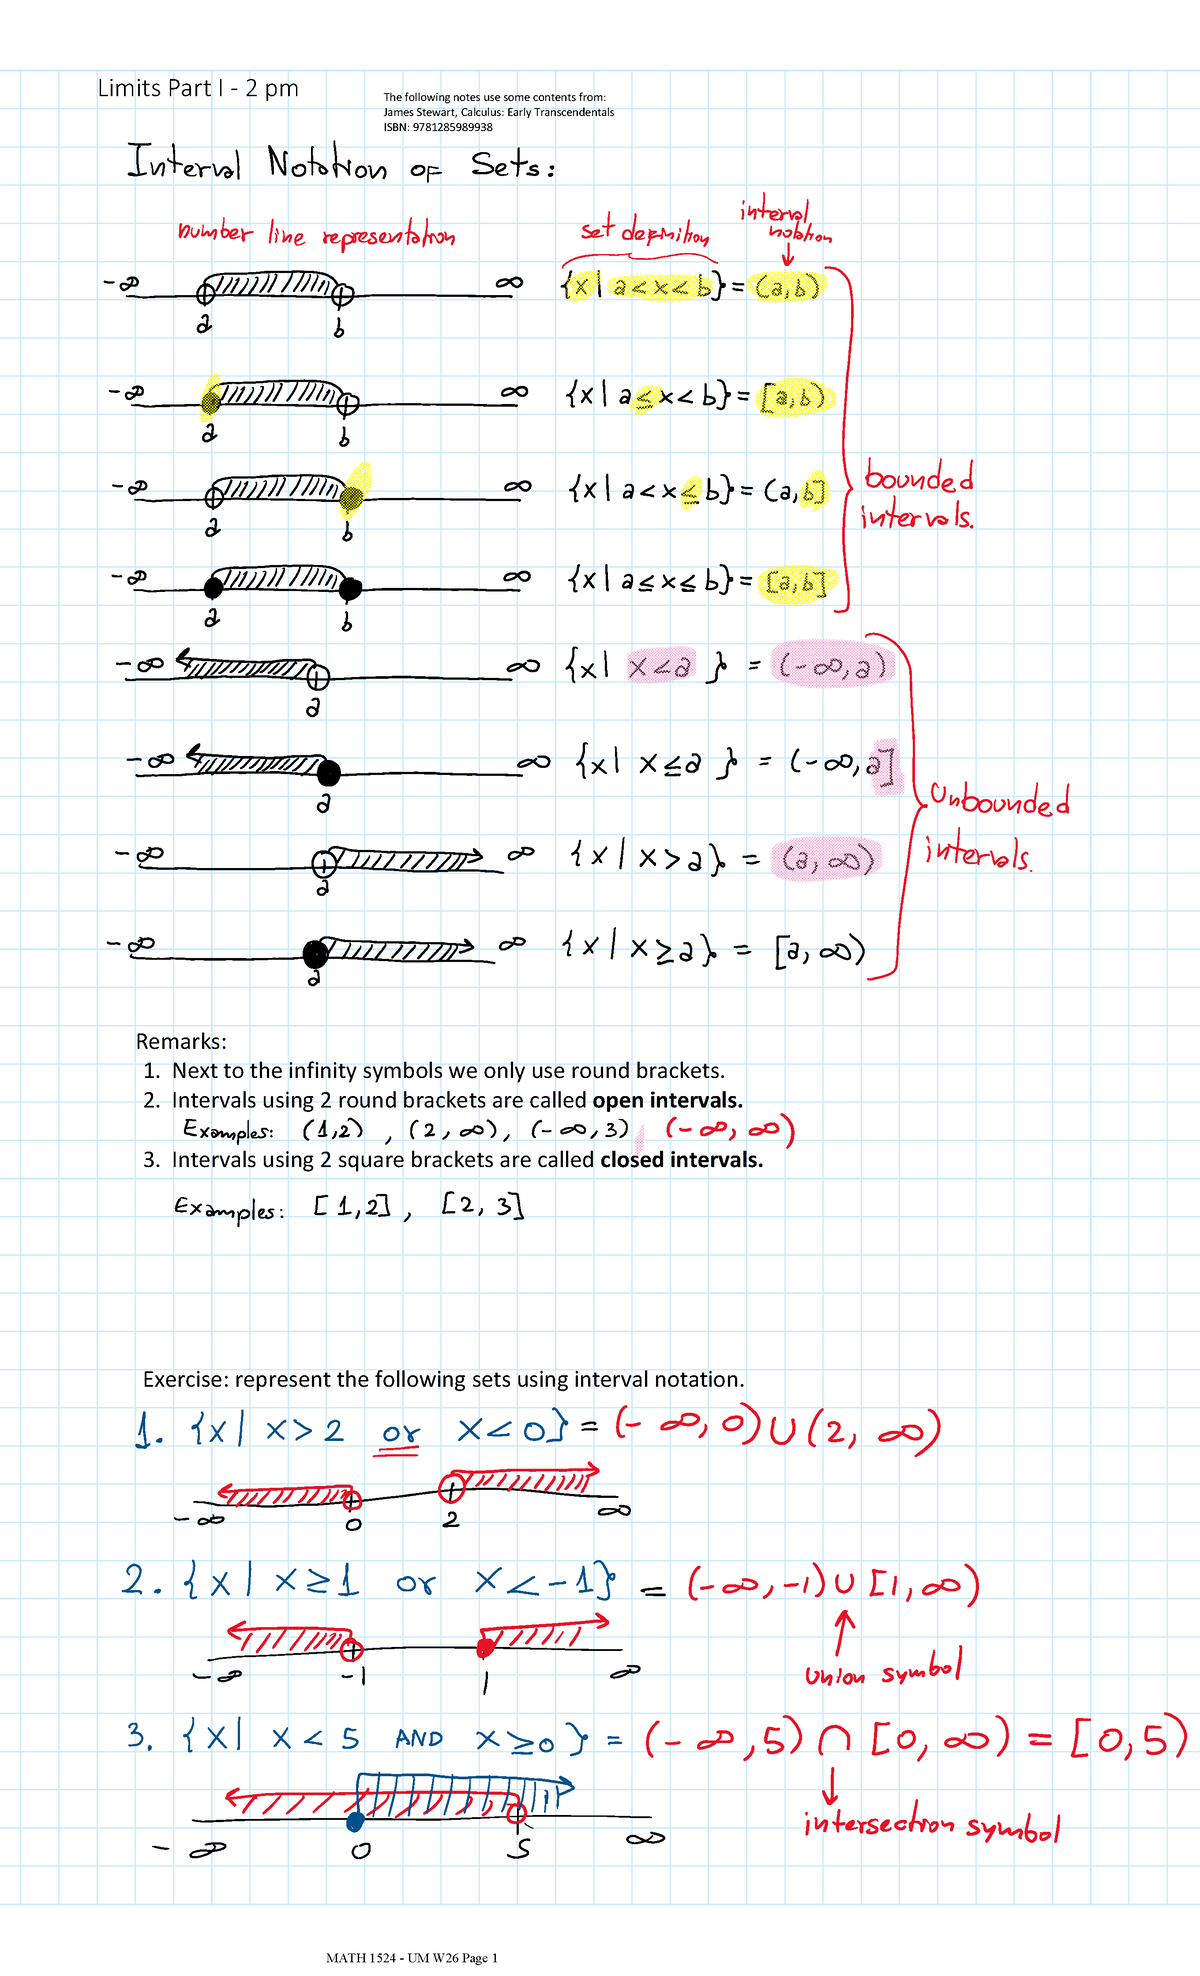 Limits Part I - 2 pm
The following notes use some contents from:
James Stewart, Calculus: Early Transcendentals
ISBN: 9781285989938
Interval Notation of Sets:
number line representation set definition interval notation
-∞ a b ∞ {x| a<x<b} = (a,b)
-∞ a b ∞ {x| a≤x<b} = [a,b)
-∞ a b ∞ {x| a<x≤b} = (a,b]
-∞ a b ∞ {x| a≤x≤b} = [a,b]
bounded
intervals.
-∞ a ∞ {x| x<a } = (-∞,a)
-∞ a ∞ {x| x≤a } = (-∞,a]
-∞ a ∞ {x| x>a} = (a,∞)
-∞ a ∞ {x| x≥a} = [a,∞)
Unbounded
intervals.
Remarks:
1. Next to the infinity symbols we only use round brackets.
2. Intervals using 2 round brackets are called open intervals.
Examples: (1,2) , (2,∞), (-∞,3) (-∞,∞)
3. Intervals using 2 square brackets are called closed intervals.
Examples: [1,2], [2,3]
Exercise: represent the following sets using interval notation.
1. {x| x>2 or x<0} = (-∞,0)∪(2,∞)
-∞ 0 2 ∞
2. {x| x≥1 or x<-1} = (-∞,-1)∪[1,∞)
-∞ -1 1 ∞
union symbol
3. {x| x<5 AND x≥0} = (-∞,5)∩[0,∞) = [0,5)
-∞ 0 5 ∞
intersection symbol
MATH 1524 - UM W26 Page 1